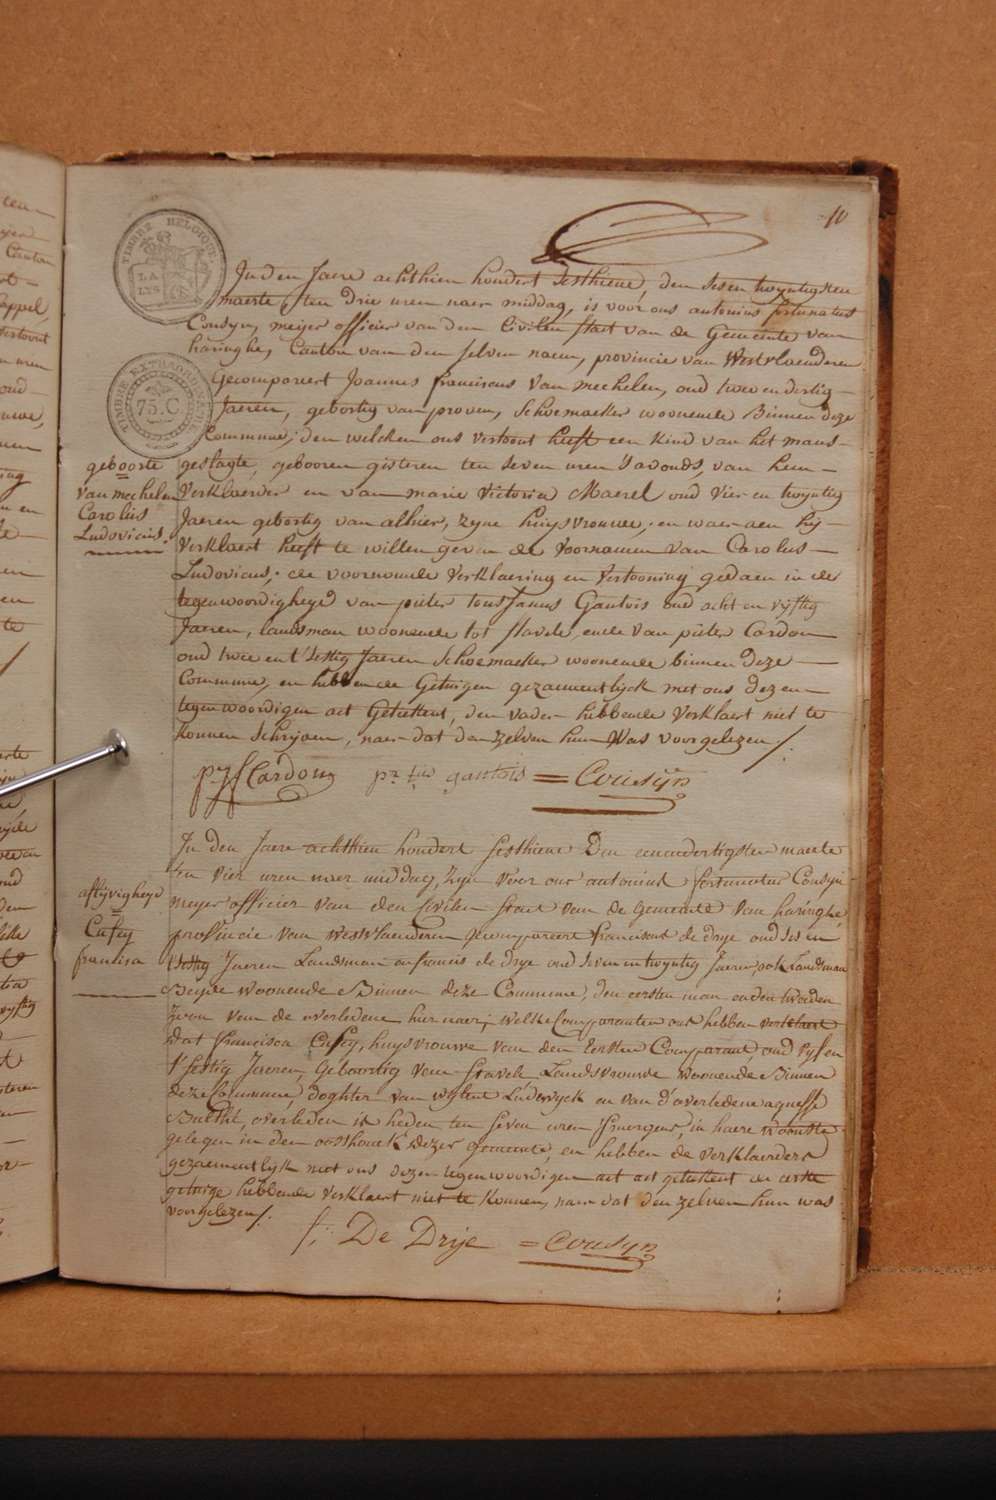 10
TIMBRE BELGIQUE
LA
LYS
In den Jaere achthien hondert Sesthiene den Sesen twyntigsten
maerte, ten drie uren naer middag, is voor ons antonius fortunatus
Cousyn, meijer officier van den Civilen staet van de Gemeente van
haringhe, Canton van den selven naem, provincie van Westvlaenderen
Gecompareert Joannes franciscus Van mechelen, oud twee en dertig
TIMBRE EXTRAORDINAIRE
75.C
Jaeren, gebortig van proven, Schoemaeker woonende Binnen deze
Commune, den welcken ons vertoont heeft een kind van het mans-
geboorte
van mechelen
Carolus
Ludovicus.
geslagte, gebooren gisteren ten seven uren 's avonds, van hem
Verklaerder en van marie Victoria Maerel oud vier en twyntig
Jaeren gebortig van alhier, zyne huysvrouwe, en waer aen hy
Verklaert heeft te willen geven de Voornamen van Carolus
Ludovicus, de voornoemde Verklaering en Vertooning gedaen in de
tegenwoordigheyd van pieter Gantois oud acht en vyftig
Jaeren, landsman woonende tot stavele, ende van pieter Cardon
oud twee en t'Sestig Jaeren Schoemaeker woonende binnen deze
Commune, en hebben de Getuigen gezaementlijck met ons dezen
tegenwoordigen act Geteekent, den vader hebbende Verklaert niet te
konnen Schrijven, naer dat den zelven hun Was voorgelezen /.
Cardon gantois = Cousijn
In den Jaere achthien hondert sesthiene Den eenendertigsten maerte
ten vier uren naer middag, zyn voor ons antonius fortunatus Cousyn
aflijvigheyd
Cufey
francisca
meyer officier van den civilen staet van de gemeente van haringhe,
provincie van Westvlaenderen gecompareert franciscus de drije oud ses en
tsestig Jaeren Landsman en francis de drije oud seven en twyntig Jaeren ook Landsman
Beyde woonende Binnen deze Commune, den eersten man en den tweeden
zoon van de overledene hier naer, welke Comparanten ons hebben verklaert
dat francisca Cufey, huysvrouwe van den Eersten Comparant, oud vyf en
t'sestig Jaeren, geboortig van Stavele Landsvrouwe woonende Binnen
deze Commune, dogter van wylent Ludovyck en van d'overledene agnesse
overleden is heden ten seven uren smorgens, in haere woonste
gelegen in den oosthoek dezer gemeente, en hebben de verklaerders
gezaementlijk met ons dezen tegenwoordigen act act geteekent de eerste
getuige hebbende verklaert niet te konnen, naer dat den zelven hun was
voorgelezen /.
f: De Drije = Cousyn